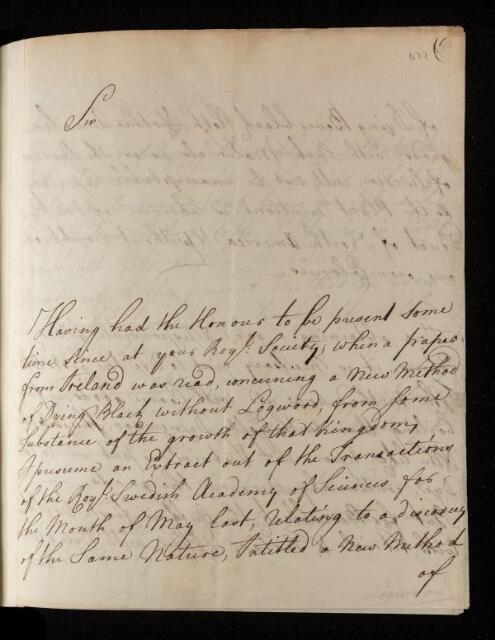 Sir
Having had the Honour to be present some
time since at your Roy.l Society; when a paper
from Ireland was read, concerning a New Method
of Dying Black without Logwood, from some
Substance of the growth of that Kingdom,
I presume an Extract out of the Transactions
of the Roy.l Swedish Academy of Sciences for
the Month of May last, relating to a discovery
of the Same Nature, Intitled a New Method
of